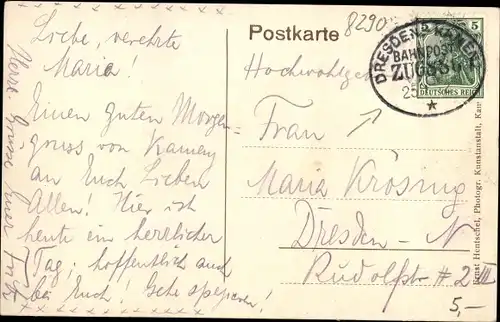 Postkarte
8290
Liebe, verehrte
Maria!
Einen guten Morgen-
gruss von Kamenz
an Euch Lieben
Allen! Hier ist
heute ein herrlicher
Tag; hoffentlich auch
bei Euch! Gehe spazieren!
Herzl. Grüsse Euer Fritz
Hochwohlgeb
Frau
Maria Krösing
Dresden-N
Rudolfstr #2 III
DRESDEN KAMENZ
BAHNPOST
ZUG
25
5
DEUTSCHES REICH
Hentschel, Photogr. Kunstanstalt, Kam
5,-